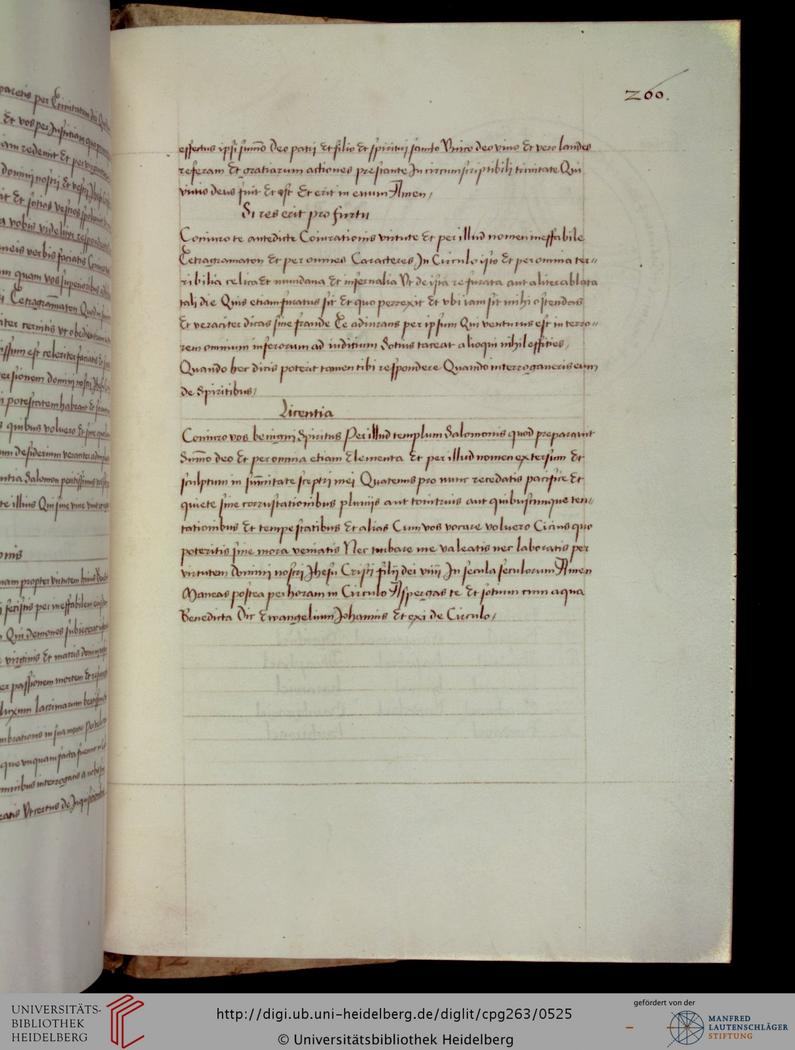 200.
effectus ipsi sum̄o deo patri et filio et spiritui sancto Vnico deo viuo et vero laudes
referam et gratiarum actiones prestante In circumscriptibili trinitate Qui
viuis deus fuit Et est Et erit in euum Amen/
Si res erit pro furtu
Coniuro te antedicte Coniurationis virtute Et per illud nomen ineffabile
Tetragramaton Et per omnes Caracteres In Circulo isto Et per omnia ter-
ribilia celica et mundana et infernalia Vt de ista re furata aut aliter ablata
tali die Quis etiam furatus sit Et quo perrexit Et vbi iam sit mihi ostendas
Et veraciter dicas sine fraude Te adiurans per ipsum Qui venturus est in terro-
rem omnium inferorum ad iuditium Totus taceat alioqui nihil efficies/
Quando hec dicis poterit tamen tibi respondere Quando interrogaueris eum
de Spiritibus/
Licentia
Coniuro vos benigni Spiritus Per illud templum Salomonis quod preparauit
Sum̄o deo Et per omnia etiam Elementa Et per illud nomen extersum Et
sculptum in sum̄itate sceptri mei Quatenus pro nunc recedatis pacifice Et
quiete sine corrustationibus pluuijs aut tonitruis aut quibuscunque ten-
tationibus Et tempestatibus Et alias Cum vos vocare voluero Cicius quo
poteritis sine mora veniatis Nec turbare me valeatis nec laboratis per
virtutem domini nostri Jhesu Cristi filij dei viui In secula seculorum Amen
Maneas postea per horam in Circulo Aspergas te Et totum cum aqua
Benedicta Dic Ewangelium Johannis Et exi de Circulo/
UNIVERSITÄTS-
BIBLIOTHEK
HEIDELBERG
http://digi.ub.uni-heidelberg.de/diglit/cpg263/0525
© Universitätsbibliothek Heidelberg
gefördert von der
MANFRED
LAUTENSCHLÄGER
STIFTUNG